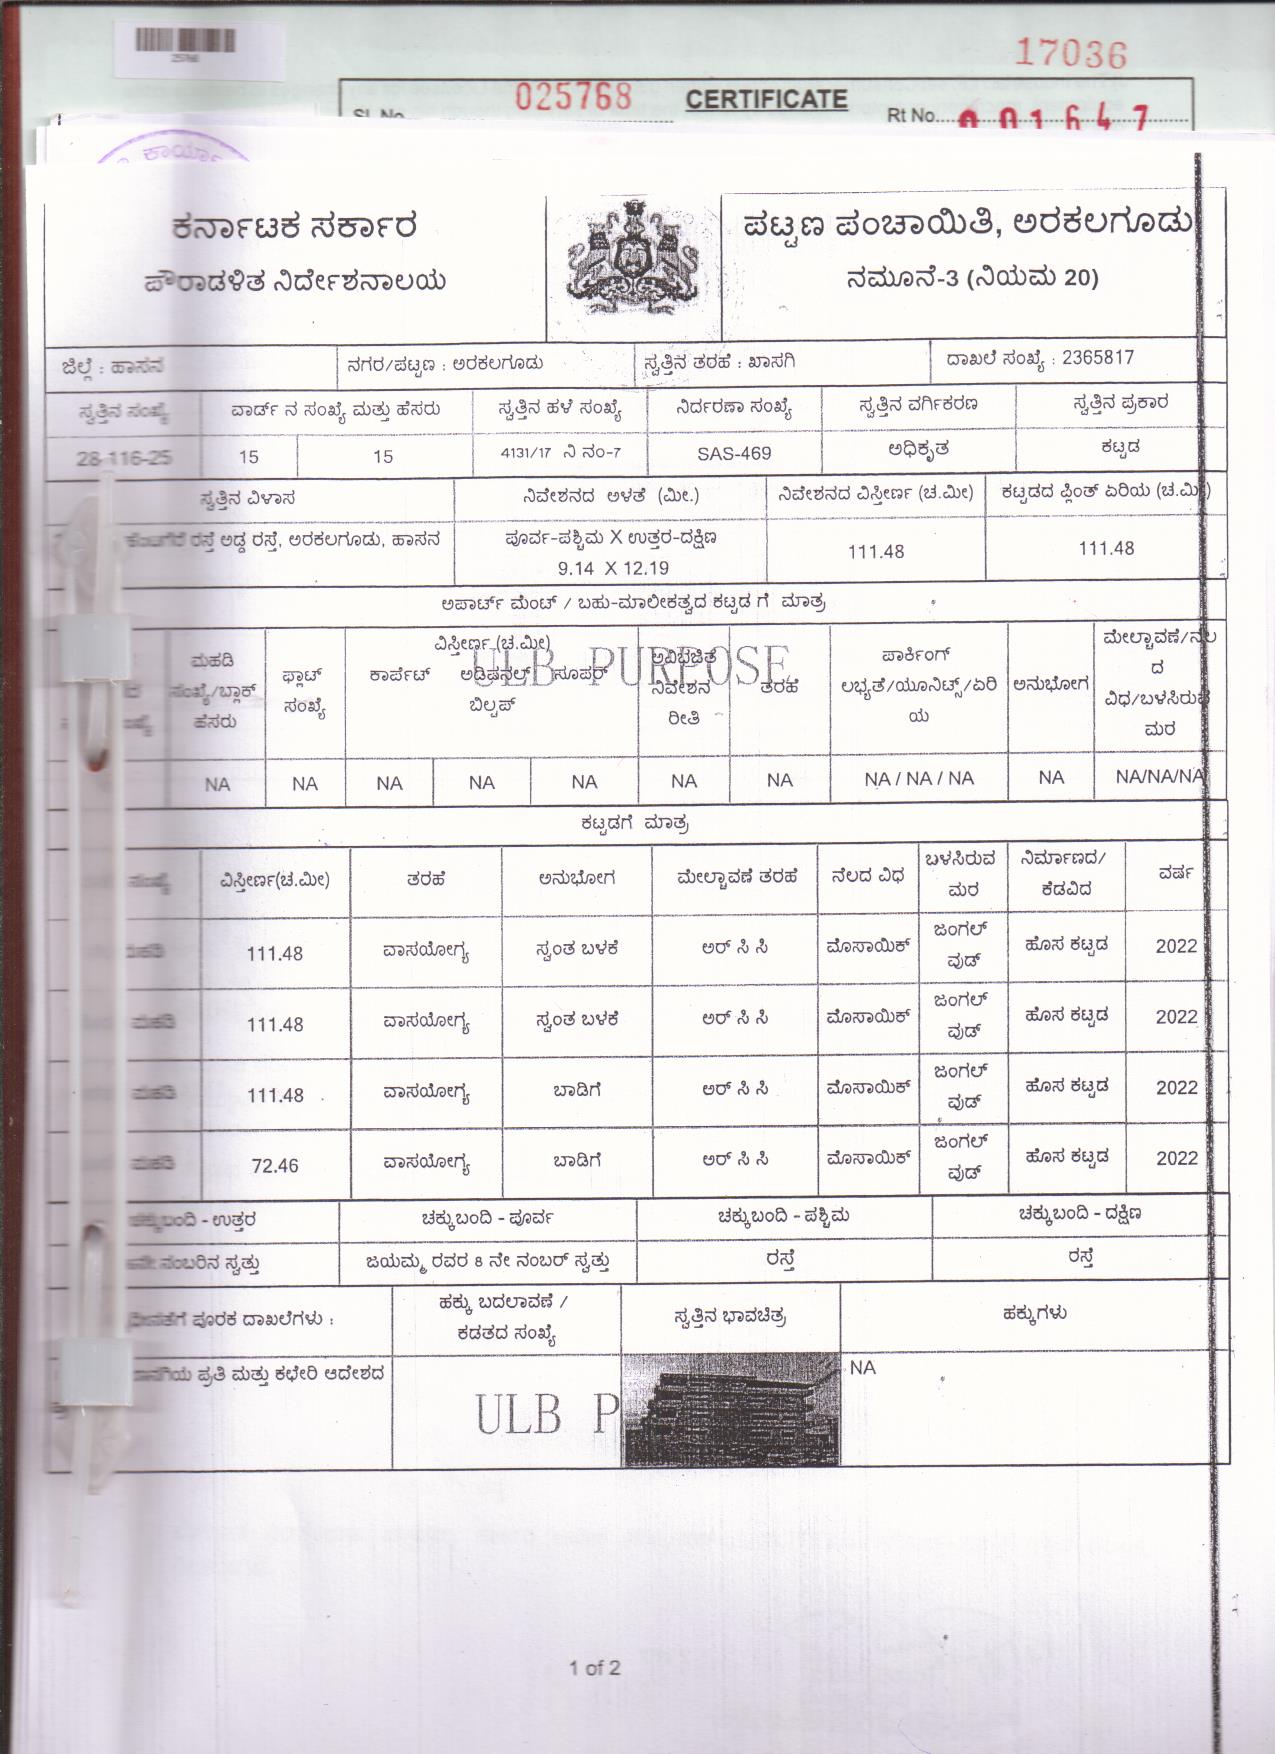 25768
17036
025768
CERTIFICATE
Sl. No.
Rt No. 001647
ಕಾರ್ಯಾ
ಕರ್ನಾಟಕ ಸರ್ಕಾರ
ಪೌರಾಡಳಿತ ನಿರ್ದೇಶನಾಲಯ
ಪಟ್ಟಣ ಪಂಚಾಯಿತಿ, ಅರಕಲಗೂಡು
ನಮೂನೆ-3 (ನಿಯಮ 20)
ಜಿಲ್ಲೆ : ಹಾಸನ ನಗರ/ಪಟ್ಟಣ : ಅರಕಲಗೂಡು ಸ್ವತ್ತಿನ ತರಹೆ : ಖಾಸಗಿ ದಾಖಲೆ ಸಂಖ್ಯೆ : 2365817
ಸ್ವತ್ತಿನ ಸಂಖ್ಯೆ ವಾರ್ಡ್ ನ ಸಂಖ್ಯೆ ಮತ್ತು ಹೆಸರು ಸ್ವತ್ತಿನ ಹಳೆ ಸಂಖ್ಯೆ ನಿರ್ದರಣಾ ಸಂಖ್ಯೆ ಸ್ವತ್ತಿನ ವರ್ಗಿಕರಣ ಸ್ವತ್ತಿನ ಪ್ರಕಾರ
28-116-25 15 15 4131/17 ನಿ ನಂ-7 SAS-469 ಅಧಿಕೃತ ಕಟ್ಟಡ
ಸ್ವತ್ತಿನ ವಿಳಾಸ ನಿವೇಶನದ ಅಳತೆ (ಮೀ.) ನಿವೇಶನದ ವಿಸ್ತೀರ್ಣ (ಚ.ಮೀ) ಕಟ್ಟಡದ ಪ್ಲಿಂತ್ ಏರಿಯ (ಚ.ಮೀ)
ರಸ್ತೆ ಅಡ್ಡ ರಸ್ತೆ, ಅರಕಲಗೂಡು, ಹಾಸನ ಪೂರ್ವ-ಪಶ್ಚಿಮ X ಉತ್ತರ-ದಕ್ಷಿಣ
9.14 X 12.19 111.48 111.48
ಅಪಾರ್ಟ್ ಮೆಂಟ್ / ಬಹು-ಮಾಲೀಕತ್ವದ ಕಟ್ಟಡ ಗೆ ಮಾತ್ರ
ULB PURPOSE
ಮಹಡಿ
ಸಂಖ್ಯೆ/ಬ್ಲಾಕ್
ಹೆಸರು
ಫ್ಲಾಟ್
ಸಂಖ್ಯೆ
ವಿಸ್ತೀರ್ಣ (ಚ.ಮೀ)
ಕಾರ್ಪೆಟ್ ಅಡಿಷನಲ್ ಸೂಪರ್
ಬಿಲ್ಟಪ್
ಅವಿಭಜಿತ
ನಿವೇಶನ
ರೀತಿ
ತರಹೆ
ಪಾರ್ಕಿಂಗ್
ಲಭ್ಯತೆ/ಯೂನಿಟ್ಸ್/ಏರಿ
ಯ
ಅನುಭೋಗ
ಮೇಲ್ಚಾವಣೆ/ನೆಲ
ದ
ವಿಧ/ಬಳಸಿರುವ
ಮರ
NA NA NA NA NA NA NA NA / NA / NA NA NA/NA/NA
ಕಟ್ಟಡಗೆ ಮಾತ್ರ
ಸಂಖ್ಯೆ ವಿಸ್ತೀರ್ಣ(ಚ.ಮೀ) ತರಹೆ ಅನುಭೋಗ ಮೇಲ್ಚಾವಣೆ ತರಹೆ ನೆಲದ ವಿಧ ಬಳಸಿರುವ ಮರ ನಿರ್ಮಾಣದ/ ಕೆಡವಿದ ವರ್ಷ
ಮಹಡಿ 111.48 ವಾಸಯೋಗ್ಯ ಸ್ವಂತ ಬಳಕೆ ಅರ್ ಸಿ ಸಿ ಮೊಸಾಯಿಕ್ ಜಂಗಲ್ ವುಡ್ ಹೊಸ ಕಟ್ಟಡ 2022
ಮಹಡಿ 111.48 ವಾಸಯೋಗ್ಯ ಸ್ವಂತ ಬಳಕೆ ಅರ್ ಸಿ ಸಿ ಮೊಸಾಯಿಕ್ ಜಂಗಲ್ ವುಡ್ ಹೊಸ ಕಟ್ಟಡ 2022
ಮಹಡಿ 111.48 ವಾಸಯೋಗ್ಯ ಬಾಡಿಗೆ ಅರ್ ಸಿ ಸಿ ಮೊಸಾಯಿಕ್ ಜಂಗಲ್ ವುಡ್ ಹೊಸ ಕಟ್ಟಡ 2022
ಮಹಡಿ 72.46 ವಾಸಯೋಗ್ಯ ಬಾಡಿಗೆ ಅರ್ ಸಿ ಸಿ ಮೊಸಾಯಿಕ್ ಜಂಗಲ್ ವುಡ್ ಹೊಸ ಕಟ್ಟಡ 2022
ಚಕ್ಕುಬಂದಿ - ಉತ್ತರ ಚಕ್ಕುಬಂದಿ - ಪೂರ್ವ ಚಕ್ಕುಬಂದಿ - ಪಶ್ಚಿಮ ಚಕ್ಕುಬಂದಿ - ದಕ್ಷಿಣ
ನಂಬರಿನ ಸ್ವತ್ತು ಜಯಮ್ಮ ರವರ 8 ನೇ ನಂಬರ್ ಸ್ವತ್ತು ರಸ್ತೆ ರಸ್ತೆ
ಪೂರಕ ದಾಖಲೆಗಳು : ಹಕ್ಕು ಬದಲಾವಣೆ / ಕಡತದ ಸಂಖ್ಯೆ ಸ್ವತ್ತಿನ ಭಾವಚಿತ್ರ ಹಕ್ಕುಗಳು
ಪ್ರತಿ ಮತ್ತು ಕಛೇರಿ ಆದೇಶದ NA
ULB P
1 of 2